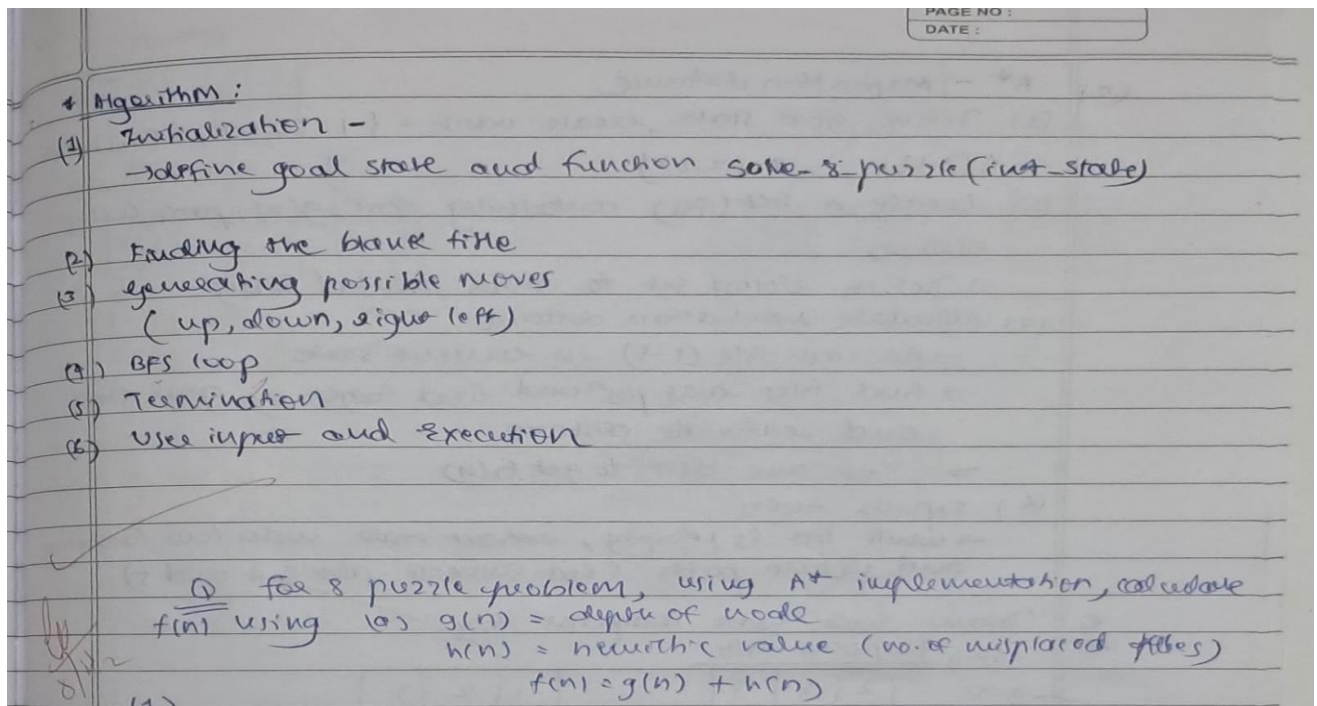 PAGE NO :
DATE :
* Algorithm :
(1) Initialization -
→ define goal state and function solve-8-puzzle (init-state)
(2) Finding the blank title
(3) generating possible moves
( up, down, right left)
(4) BFS loop
(5) Termination
(6) User input and Execution
Q For 8 puzzle problem, using A* implementation, calculate
f(n) using (a) g(n) = depth of node
h(n) = heuristic value (no. of misplaced tiles)
f(n) = g(n) + h(n)